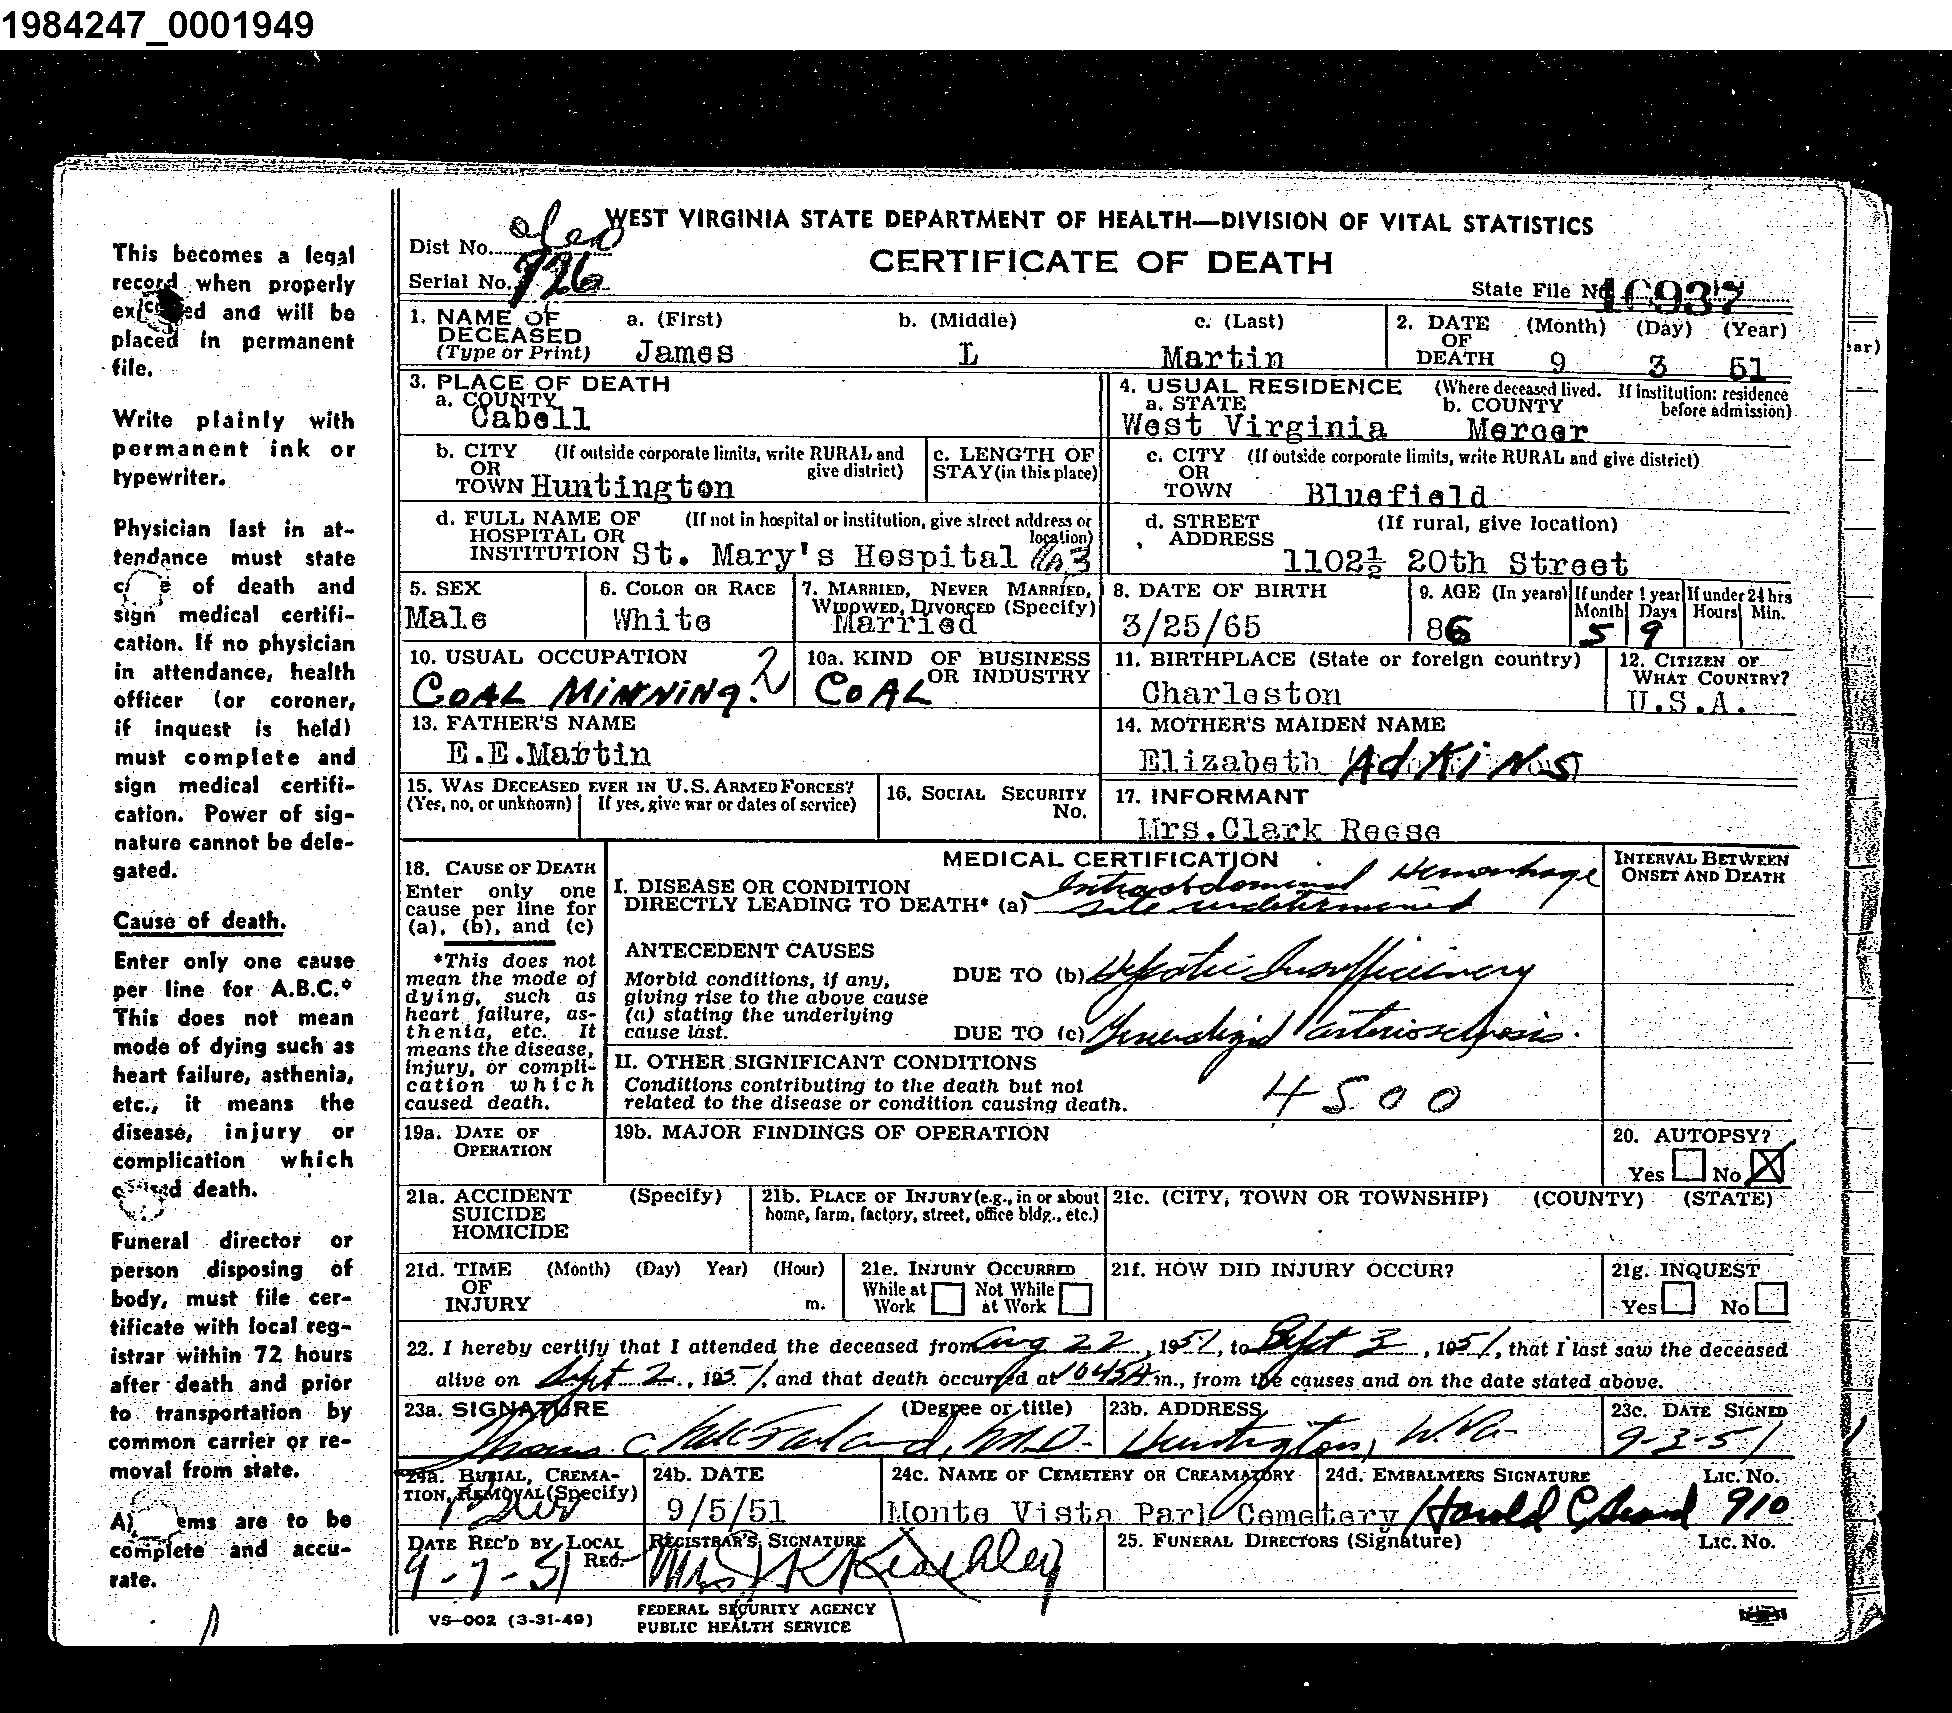 1984247_0001949
This becomes a legal
record when properly
and will be
placed in permanent
file.
Write plainly with
permanent ink or
typewriter.
Physician last in at-
tendance must state
of death and
sign medical certifi-
cation. If no physician
in attendance, health
officer (or coroner,
if inquest is held)
must complete and
sign medical certifi-
cation. Power of sig-
nature cannot be dele-
gated.
Cause of death.
Enter only one cause
per line for A.B.C.*
This does not mean
mode of dying such as
heart failure, asthenia,
etc., it means the
disease, injury or
complication which
caused death.
Funeral director or
person disposing of
body, must file cer-
tificate with local reg-
istrar within 72 hours
after death and prior
to transportation by
common carrier or re-
moval from state.
are to be
complete and accu-
rate.
WEST VIRGINIA STATE DEPARTMENT OF HEALTH—DIVISION OF VITAL STATISTICS
Dist No.
CERTIFICATE OF DEATH
Serial No. 726
State File No. 10937
1. NAME OF DECEASED (Type or Print) a. (First) James b. (Middle) L c. (Last) Martin
2. DATE OF DEATH (Month) (Day) (Year) 9 3 51
3. PLACE OF DEATH
a. COUNTY Cabell
4. USUAL RESIDENCE (Where deceased lived. If institution: residence before admission)
a. STATE West Virginia b. COUNTY Mercer
b. CITY OR TOWN (If outside corporate limits, write RURAL and give district) Huntington
c. LENGTH OF STAY (in this place)
c. CITY OR TOWN (If outside corporate limits, write RURAL and give district) Bluefield
d. FULL NAME OF HOSPITAL OR INSTITUTION (If not in hospital or institution, give street address or location) St. Mary's Hospital
d. STREET ADDRESS (If rural, give location) 1102½ 20th Street
5. SEX Male
6. COLOR OR RACE White
7. MARRIED, NEVER MARRIED, WIDOWED, DIVORCED (Specify) Married
8. DATE OF BIRTH 3/25/65
9. AGE (In years) 86 If under 1 year Month 5 Days 9 If under 24 hrs Hours Min.
10. USUAL OCCUPATION COAL MINNING. ?
10a. KIND OF BUSINESS OR INDUSTRY COAL
11. BIRTHPLACE (State or foreign country) Charleston
12. CITIZEN OF WHAT COUNTRY? U.S.A.
13. FATHER'S NAME E.E.Martin
14. MOTHER'S MAIDEN NAME Elizabeth AdKiNS
15. WAS DECEASED EVER IN U.S. ARMED FORCES? (Yes, no, or unknown) If yes, give war or dates of service)
16. SOCIAL SECURITY No.
17. INFORMANT Mrs.Clark Reese
18. CAUSE OF DEATH
Enter only one
cause per line for
(a), (b), and (c)
*This does not
mean the mode of
dying, such as
heart failure, as-
thenia, etc. It
means the disease,
injury, or compli-
cation which
caused death.
MEDICAL CERTIFICATION
INTERVAL BETWEEN ONSET AND DEATH
I. DISEASE OR CONDITION DIRECTLY LEADING TO DEATH* (a) Intraabdominal Hemorrhage
site undetermined
ANTECEDENT CAUSES
Morbid conditions, if any,
giving rise to the above cause
(a) stating the underlying
cause last.
DUE TO (b) Hepatic Insufficiency
DUE TO (c) Generalized arteriosclerosis.
II. OTHER SIGNIFICANT CONDITIONS
Conditions contributing to the death but not
related to the disease or condition causing death.
4500
19a. DATE OF OPERATION
19b. MAJOR FINDINGS OF OPERATION
20. AUTOPSY? Yes No X
21a. ACCIDENT SUICIDE HOMICIDE (Specify)
21b. PLACE OF INJURY (e.g., in or about home, farm, factory, street, office bldg., etc.)
21c. (CITY, TOWN OR TOWNSHIP) (COUNTY) (STATE)
21d. TIME OF INJURY (Month) (Day) Year) (Hour) m.
21e. INJURY OCCURRED While at Work Not While at Work
21f. HOW DID INJURY OCCUR?
21g. INQUEST Yes No
22. I hereby certify that I attended the deceased from Aug 22, 1951, to Sept 3, 1951, that I last saw the deceased
alive on Sept 2, 1951, and that death occurred at 1045A m., from the causes and on the date stated above.
23a. SIGNATURE (Degree or title) Thomas C McFarland, M.D.
23b. ADDRESS Huntington, W.Va.
23c. DATE SIGNED 9-3-51
24a. BURIAL, CREMATION, REMOVAL (Specify)
24b. DATE 9/5/51
24c. NAME OF CEMETERY OR CREAMATORY Monte Vista Park Cemetery
24d. EMBALMERS SIGNATURE LIC. NO. Harold 910
DATE REC'D BY LOCAL REG. 9-7-51
REGISTRAR'S SIGNATURE Mrs
25. FUNERAL DIRECTORS (Signature) LIC. NO.
VS—002 (3-31-49)
FEDERAL SECURITY AGENCY
PUBLIC HEALTH SERVICE